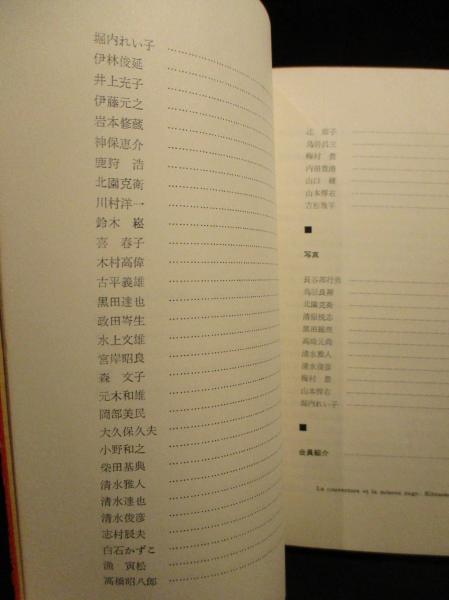 堀内れい子
伊林俊延
井上充子
伊藤元之
岩本修蔵
神保恵介
鹿狩 浩
北園克衛
川村洋一
鈴木 崧
喜 春子
木村高偉
古平義雄
黒田達也
政田岑生
水上文雄
宮岸昭良
森 文子
元木和雄
岡部美民
大久保久夫
小野和之
柴田基典
清水雅人
清水達也
清水俊彦
志村辰夫
白石かずこ
漁 寅松
高橋昭八郎
辻 節子
鳥居昌三
梅村 豊
内田豊清
山口 謙
山本悍右
吉松
■
写真
長谷部行勇
鳥居良禅
北園克衛
清原悦志
黒田維理
高崎元尚
清水雅人
清水俊彦
梅村 豊
山本悍右
堀内れい子
■
会員紹介
La couverture et la mise en page. Kitasono